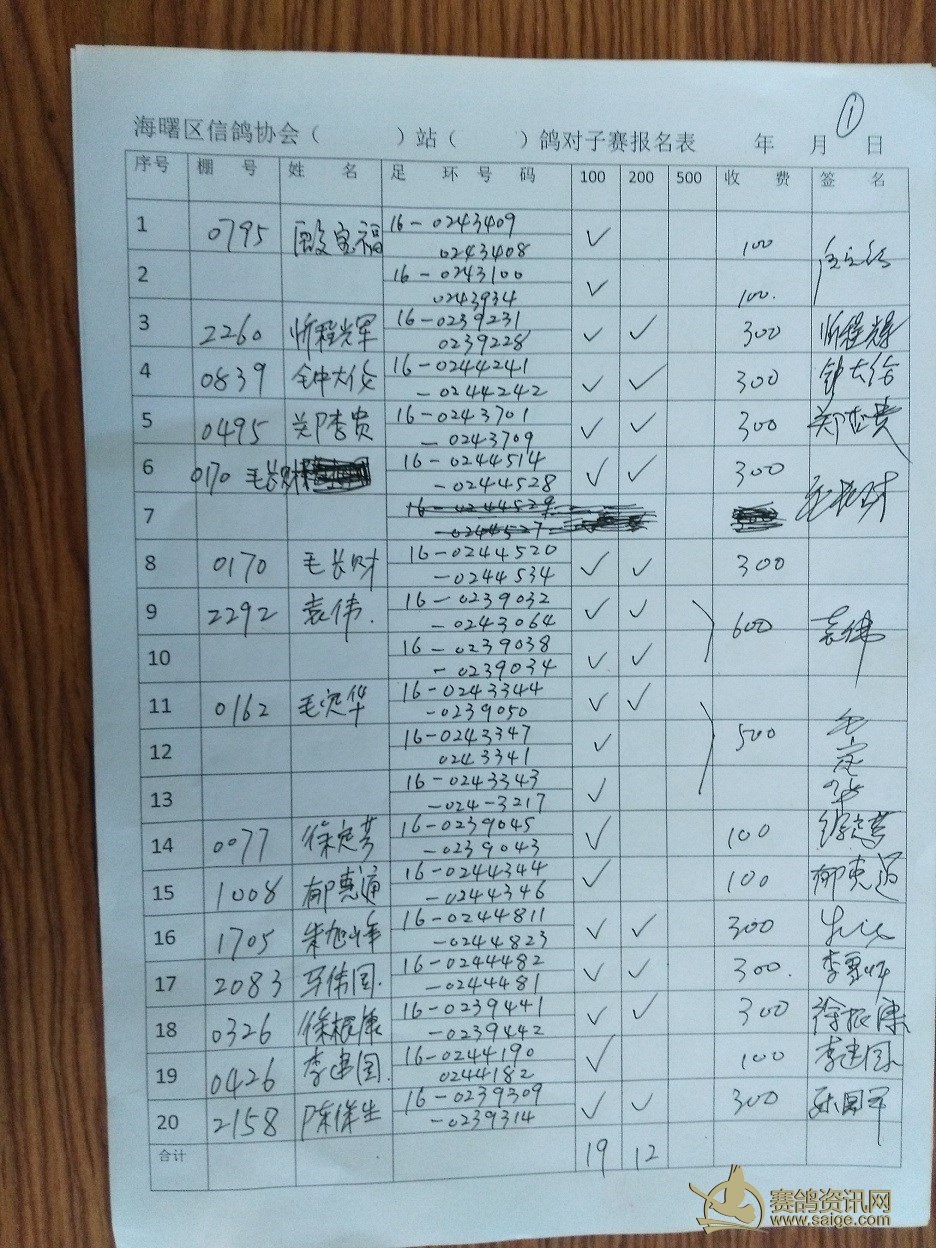 ①
海曙区信鸽协会（ ）站（ ）鸽对子赛报名表 年 月 日
序号 棚 号 姓 名 足 环 号 码 100 200 500 收 费 签 名
1 0795 殷宝福 16-0243409 ✓ 100
0243408
2 16-0243100 ✓ 100.
0243934
3 2260 忻程光军 16-0239231 ✓ ✓ 300
0239228
4 0839 钟大俊 16-0244241 ✓ ✓ 300
-0244242
5 0495 郑杏贵 16-0243701 ✓ ✓ 300 郑杏贵
-0243709
6 0170 毛长财 16-0244514 ✓ ✓ 300 毛长财
-0244528
7 16-0244529
-0244527
8 0170 毛长财 16-0244520 ✓ ✓ 300
-0244534
9 2292 袁伟. 16-0239032 ✓ ✓ 600 袁伟
-0243064
10 16-0239038 ✓ ✓
-0239034
11 0162 毛定华 16-0243344 ✓ ✓ 500 毛定华
-0239050
12 16-0243347 ✓
0243341
13 16-0243343 ✓
-024-3217
14 0077 徐定芳 16-0239045 ✓ 100 徐定芳
-0239043
15 1008 郁惠通 16-0244344 ✓ 100 郁惠通
-0244346
16 1705 朱旭峰 16-0244811 ✓ ✓ 300
-0244823
17 2083 马伟国. 16-0244482 ✓ ✓ 300.
-0244481
18 0326 徐根康 16-0239441 ✓ ✓ 300 徐振康
-0239442
19 0426 李建国. 16-0244190 ✓ 100 李建国
0244182
20 2158 陈保生 16-0239309 ✓ ✓ 300
-0239314
合计 19 12
赛鸽资讯网
www.saige.com